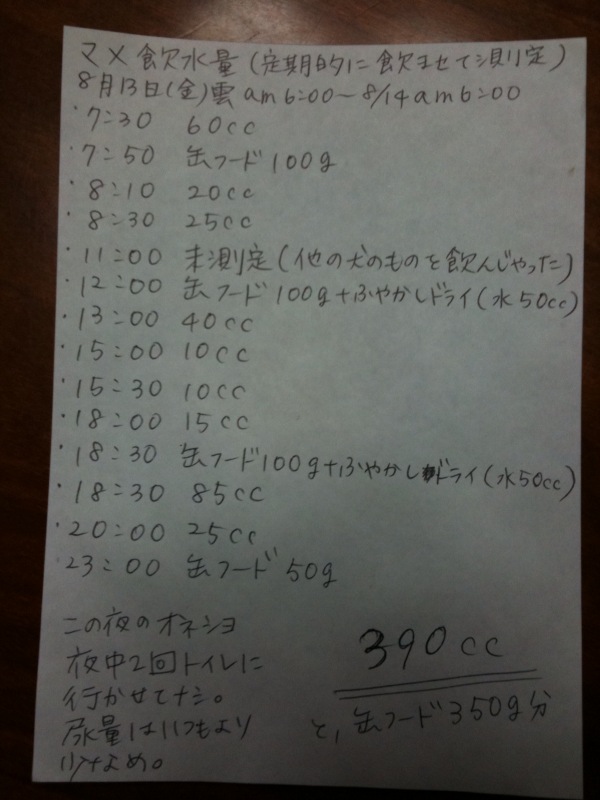 マメ飲水量(定期的に飲ませて測定)
8月13日(金)雲 am6:00〜8/14am6:00
・7:30 60cc
・7:50 缶フード100g
・8:10 20cc
・8:30 25cc
・11:00 未測定(他の犬のものを飲んじゃった)
・12:00 缶フード100g+ふやかしドライ(水50cc)
・13:00 40cc
・15:00 10cc
・15:30 10cc
・18:00 15cc
・18:30 缶フード100g+ふやかしドライ(水50cc)
・18:30 85cc
・20:00 25cc
・23:00 缶フード50g
この夜のオネショ
夜中2回トイレに
行かせてナシ。
尿量はいつもより
少なめ。
390cc
と、缶フード350g分